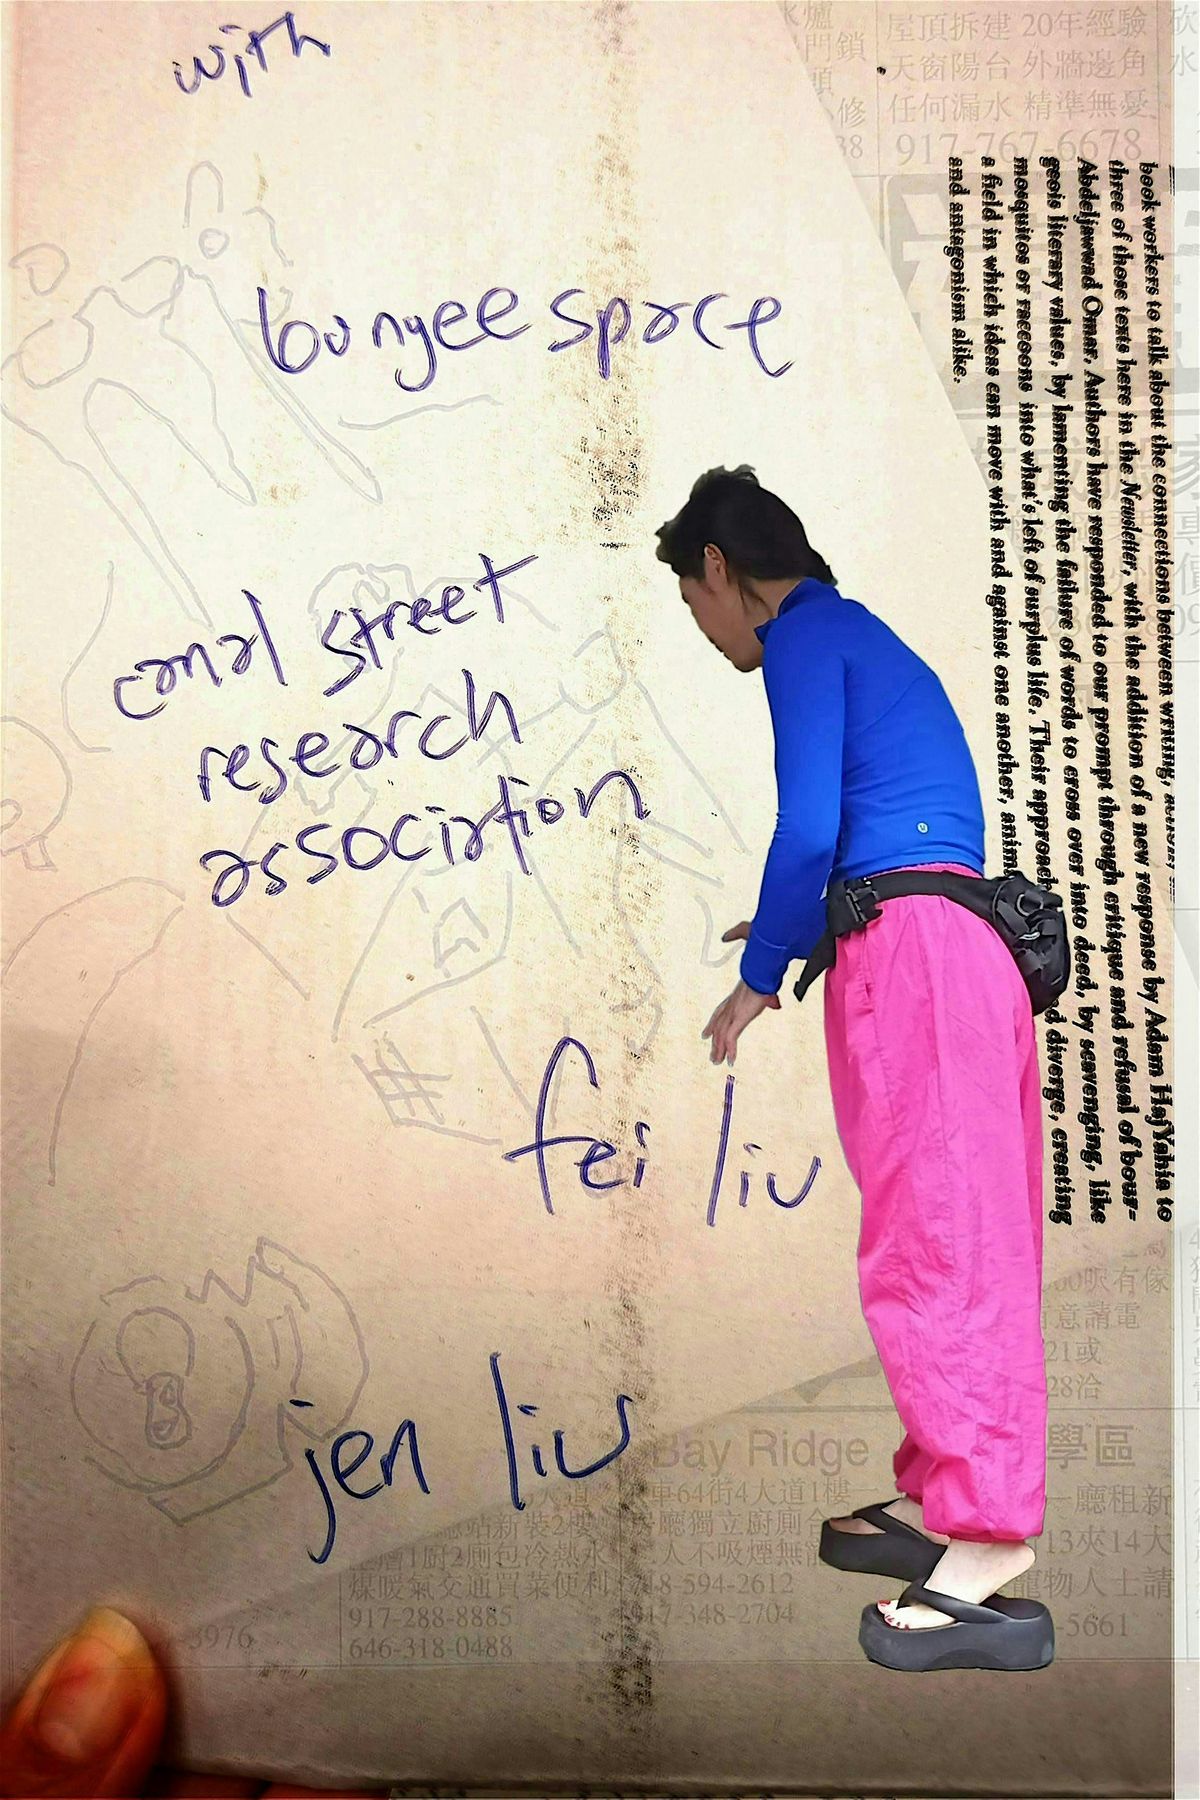 with
bungee space
canal street
research
association
fei liu
jen liu
book workers to talk about the connections between writing,
three of those texts here in the Newsletter, with the addition of a new response by Adam HajYahia to
Abdeljawwad Omar. Authors have responded to our prompt through critique and refusal of bour-
geois literary values, by lamenting the failure of words to cross over into deed, by scavenging, like
mosquitos or raccoons into what's left of surplus life. Their approach diverge, creating
a field in which ideas can move with and against one another,
and antagonism alike.
門鎖
屋頂拆建 20年經驗
天窗陽台 外牆邊角
任何漏水 精準無憂
917-767-6678
呎有傢
意請電
21或
28洽
Bay Ridge
學區
車64街4大道1樓
一廳租新
站新裝2樓
房廳獨立廚廁
13夾14大
1廚2廁包冷熱水
人不吸煙無
寵物人士請
煤暖氣交通買菜便利
8-594-2612
917-288-8885
917-348-2704
-5661
646-318-0488
-3976